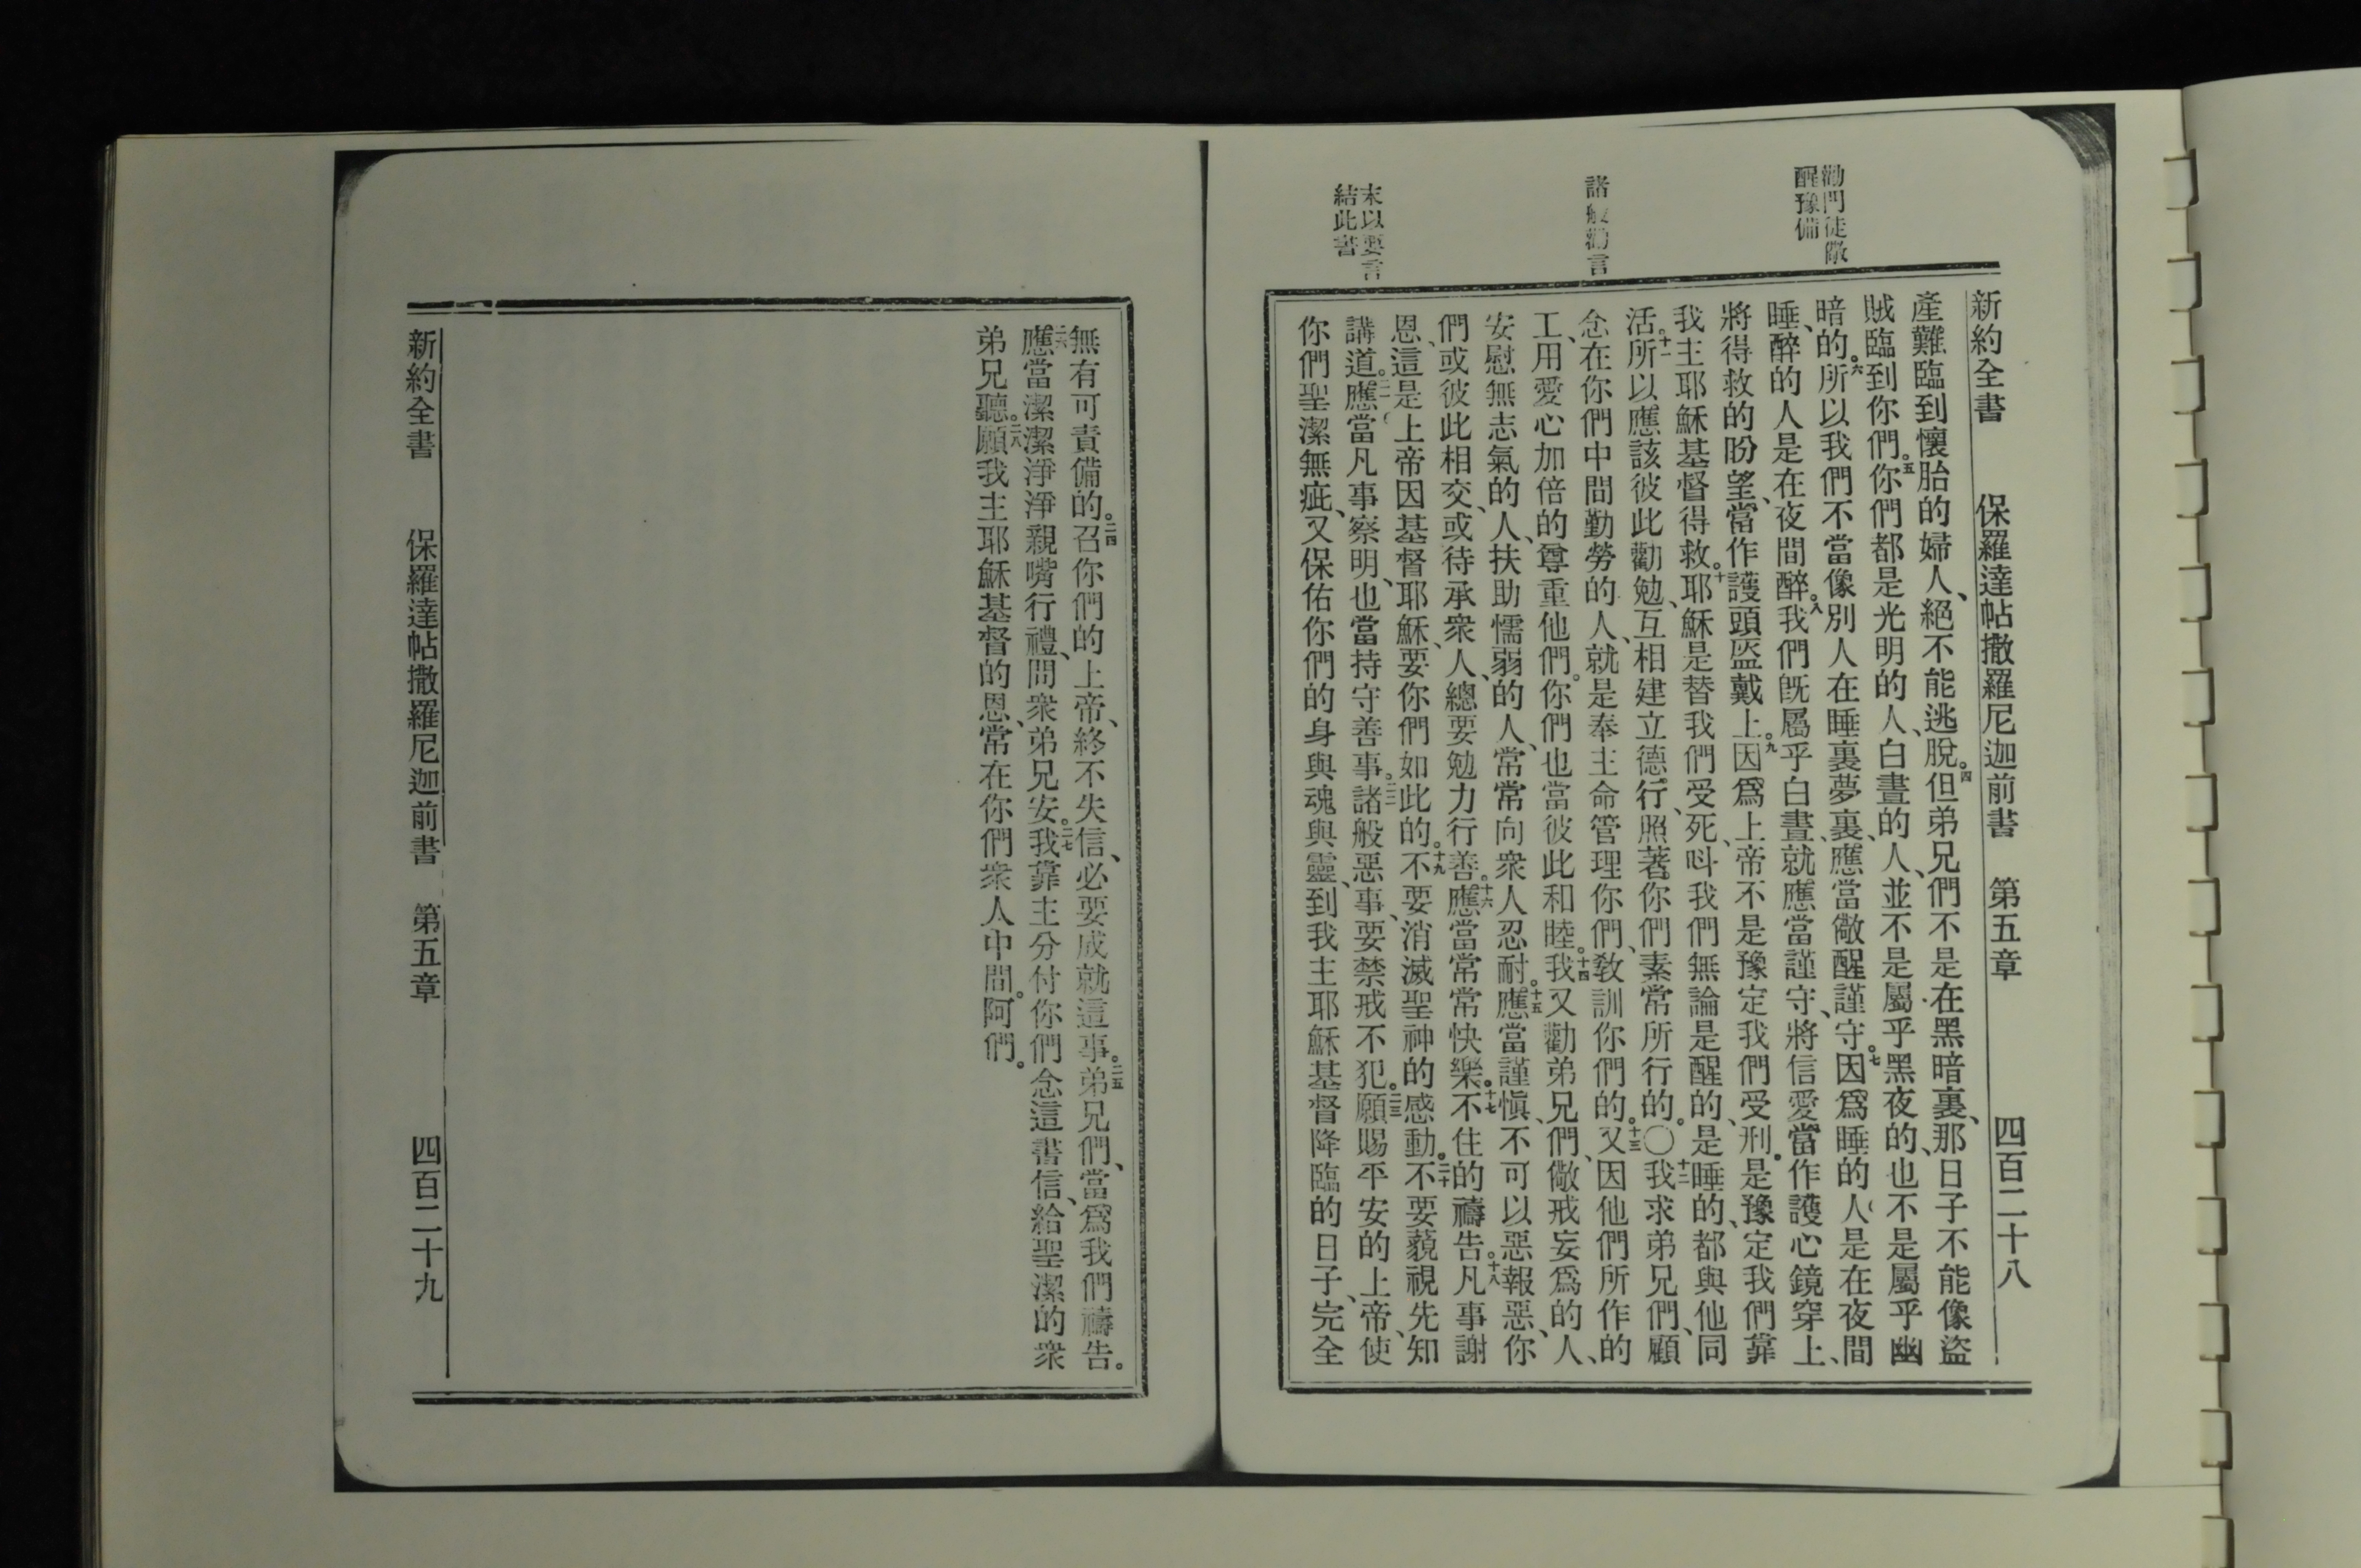 新約全書 保羅達帖撒羅尼迦前書 第五章 四百二十八
勸門徒儆
醒豫備
諸般勸言
末以要言
結此書
產難臨到懷胎的婦人、絕不能逃脫。四但弟兄們不是在黑暗裏、那日子不能像盜
賊臨到你們。五你們都是光明的人、白晝的人、並不是屬乎黑夜的、也不是屬乎幽
暗的。六所以我們不當像別人在睡裏夢裏、應當儆醒謹守。七因爲睡的人是在夜間
睡、醉的人是在夜間醉。八我們旣屬乎白晝、就應當謹守、將信愛當作護心鏡穿上、
將得救的盼望、當作護頭盔戴上。九因爲上帝不是豫定我們受刑。是豫定我們靠
我主耶穌基督得救。十耶穌是替我們受死、呌我們無論是醒的、是睡的、都與他同
活。十一所以應該彼此勸勉、互相建立德行、照著你們素常所行的。〇十二我求弟兄們、顧
念在你們中間勤勞的人、就是奉主命管理你們、敎訓你們的。十三又因他們所作的
工、用愛心加倍的尊重他們。你們也當彼此和睦。十四我又勸弟兄們、儆戒妄爲的人、
安慰無志氣的人、扶助懦弱的人、常常向衆人忍耐。十五應當謹愼、不可以惡報惡、你
們或彼此相交、或待承衆人、總要勉力行善。十六應當常常快樂。十七不住的禱告。十八凡事謝
恩、這是上帝因基督耶穌、要你們如此的。十九不要消滅聖神的感動。二十不要藐視先知
講道。二一應當凡事察明、也當持守善事。二二諸般惡事、要禁戒不犯。二三願賜平安的上帝、使
你們聖潔無疵、又保佑你們的身與魂與靈、到我主耶穌基督降臨的日子、完全
無有可責備的。二四召你們的上帝、終不失信、必要成就這事。二五弟兄們、當爲我們禱告。
二六應當潔潔淨淨親嘴行禮、問衆弟兄安。二七我靠主分付你們念這書信、給聖潔的衆
弟兄聽。二八願我主耶穌基督的恩、常在你們衆人中間。阿們。
新約全書 保羅達帖撒羅尼迦前書 第五章 四百二十九